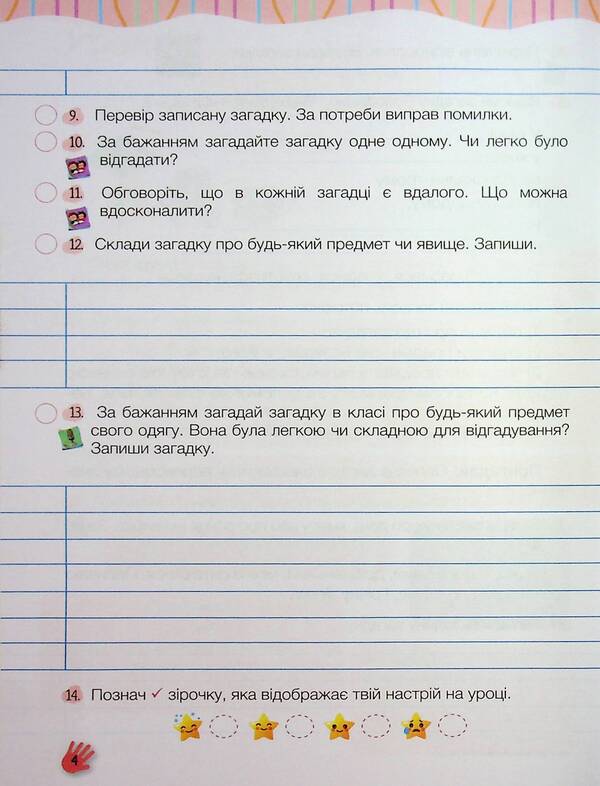 9. Перевір записану загадку. За потреби виправ помилки.
10. За бажанням загадайте загадку одне одному. Чи легко було
відгадати?
11. Обговоріть, що в кожній загадці є вдалого. Що можна
вдосконалити?
12. Склади загадку про будь-який предмет чи явище. Запиши.
13. За бажанням загадай загадку в класі про будь-який предмет
свого одягу. Вона була легкою чи складною для відгадування?
Запиши загадку.
14. Познач ✓ зірочку, яка відображає твій настрій на уроці.
4